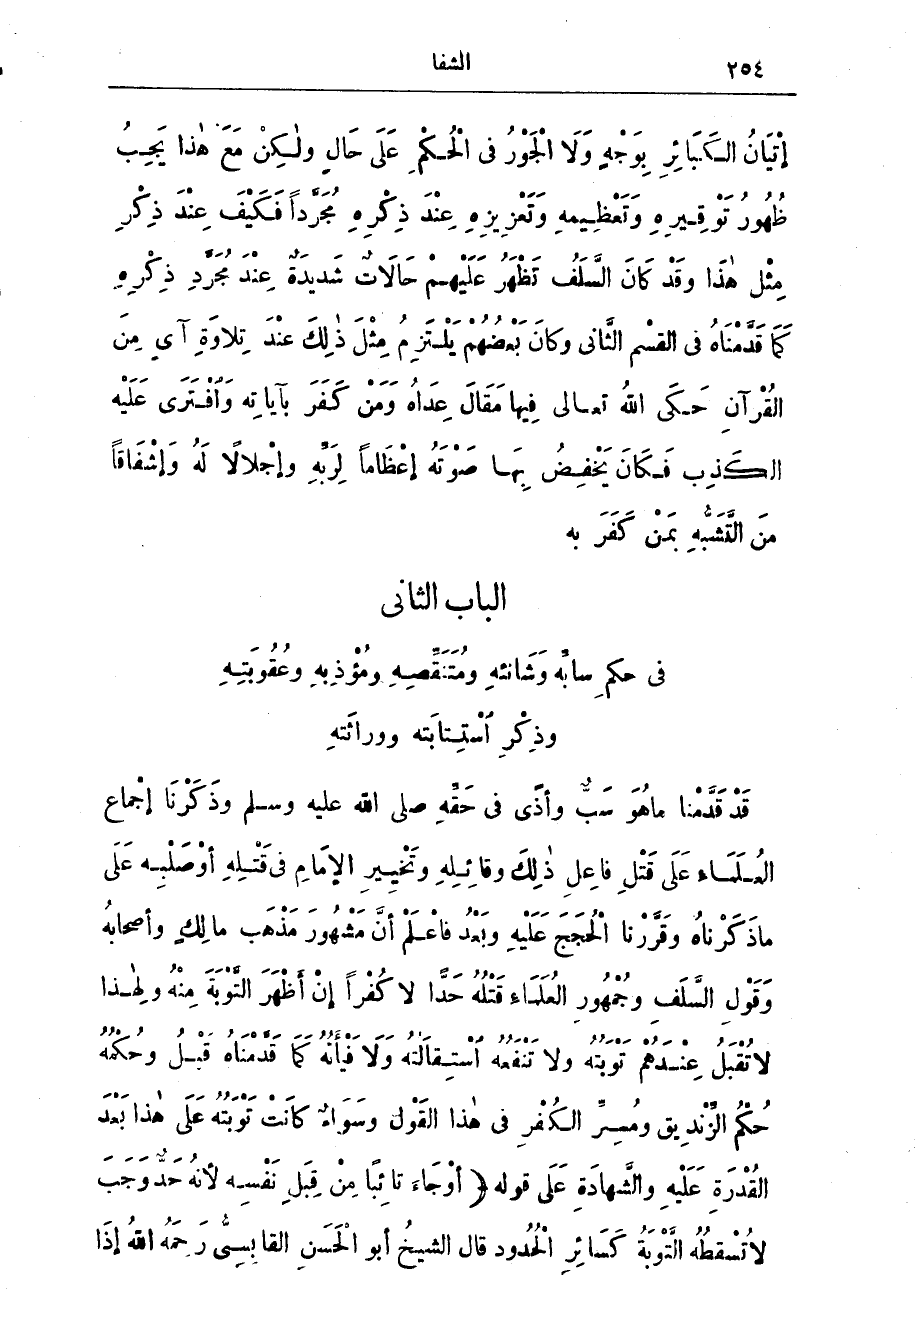 ٢٥٤
الشفا
إتْيَانُ الْكَبَائِرِ بِوَجْهٍ وَلَا الْجَوْرُ فى الْحُكْمِ عَلَى حَالٍ ولٰكِنْ مَعَ هٰذا يَجِبُ
ظُهُورُ تَوْقِيرِهِ وَتَعْظِيمِهِ وَتَعْزِيزِهِ عِنْدَ ذِكْرِهِ مُجَرَّداً فَكَيْفَ عِنْدَ ذِكْرِ
مِثْلِ هٰذَا وقَدْ كَانَ السَّلَفُ تَظْهَرُ عَلَيْهِمْ حَالَاتٌ شَدِيدَةٌ عِنْدَ مُجَرَّدِ ذِكْرِهِ
كَمَا قَدَّمْنَاهُ فى القِسْمِ الثَّانى وكانَ بَعْضُهُمْ يَلْتَزِمُ مِثْلَ ذٰلِكَ عندَ تِلاوَةِ آىٍ مِنَ
القُرْآنِ حَكَى اللهُ تعالى فِيها مَقَالَ عِدَاهُ وَمَنْ كَفَرَ بآياتِه وَافْتَرَى عَلَيْه
الكَذِبَ فَكَانَ يَخْفِضُ بِهَا صَوْتَهُ إعْظَاماً لِرَبِّهِ وإجْلالًا لَهُ وَإشْفَاقاً
مِنَ التَّشَبُّهِ بمَنْ كَفَرَ به
الباب الثانى
فى حكمِ سابِّه وَشَانئهِ ومُتَنَقِّصِهِ ومُؤْذِيهِ وعُقُوبَتِهِ
وذِكْرِ اسْتِتابَته ووراثَتهِ
قَدْ قَدَّمْنا ماهُوَ سَبٌّ وأذًى فى حَقِّهِ صلى الله عليه وسلم وذَكَرْنَا إجْماع
العُلَمَاءِ عَلَى قَتْلِ فاعِلِ ذٰلِكَ وقائِلِهِ وتَخْيِيرِ الإمَامِ فى قَتْلِهِ أوْ صَلْبِه عَلَى
ماذَكَرْناهُ وقَرَّرْنا الْحُجَجَ عَلَيْهِ وبَعْدُ فاعْلَمْ أنَّ مَشْهُورَ مَذْهَبِ مالِكٍ وأصحابُه
وَقَوْلِ السَّلَفِ وجُمْهُورِ العُلَمَاءِ قَتْلُهُ حَدًّا لا كُفْراً إنْ أظْهَرَ التَّوْبَةَ مِنْهُ ولِهٰذا
لا تُقْبَلُ عِنْدَهُمْ تَوْبَتُه ولا تَنْفَعُهُ اسْتِقالَتُه وَلَا فَيْأَتُهُ كَمَا قَدَّمْنَاه قَبْلُ وحُكمُهُ
حُكْمُ الزِّنْدِيقِ ومُسِرِّ الكُفْرِ فى هٰذا القَوْلِ وسَوَاءٌ كانَتْ تَوْبَتُه عَلَى هٰذا بَعْدَ
القُدْرَةِ عَلَيْهِ والشَّهادَةِ عَلَى قوله ( أوْجَاءَ تائِبًا مِنْ قِبَلِ نَفْسِه لأنهُ حَدٌّ وَجَبَ
لا تُسْقِطُه التَّوْبَةُ كَسَائِرِ الْحُدُود قال الشيخُ أبو الْحَسَنِ القابِسِىُّ رَحِمَهُ اللهُ إذَا